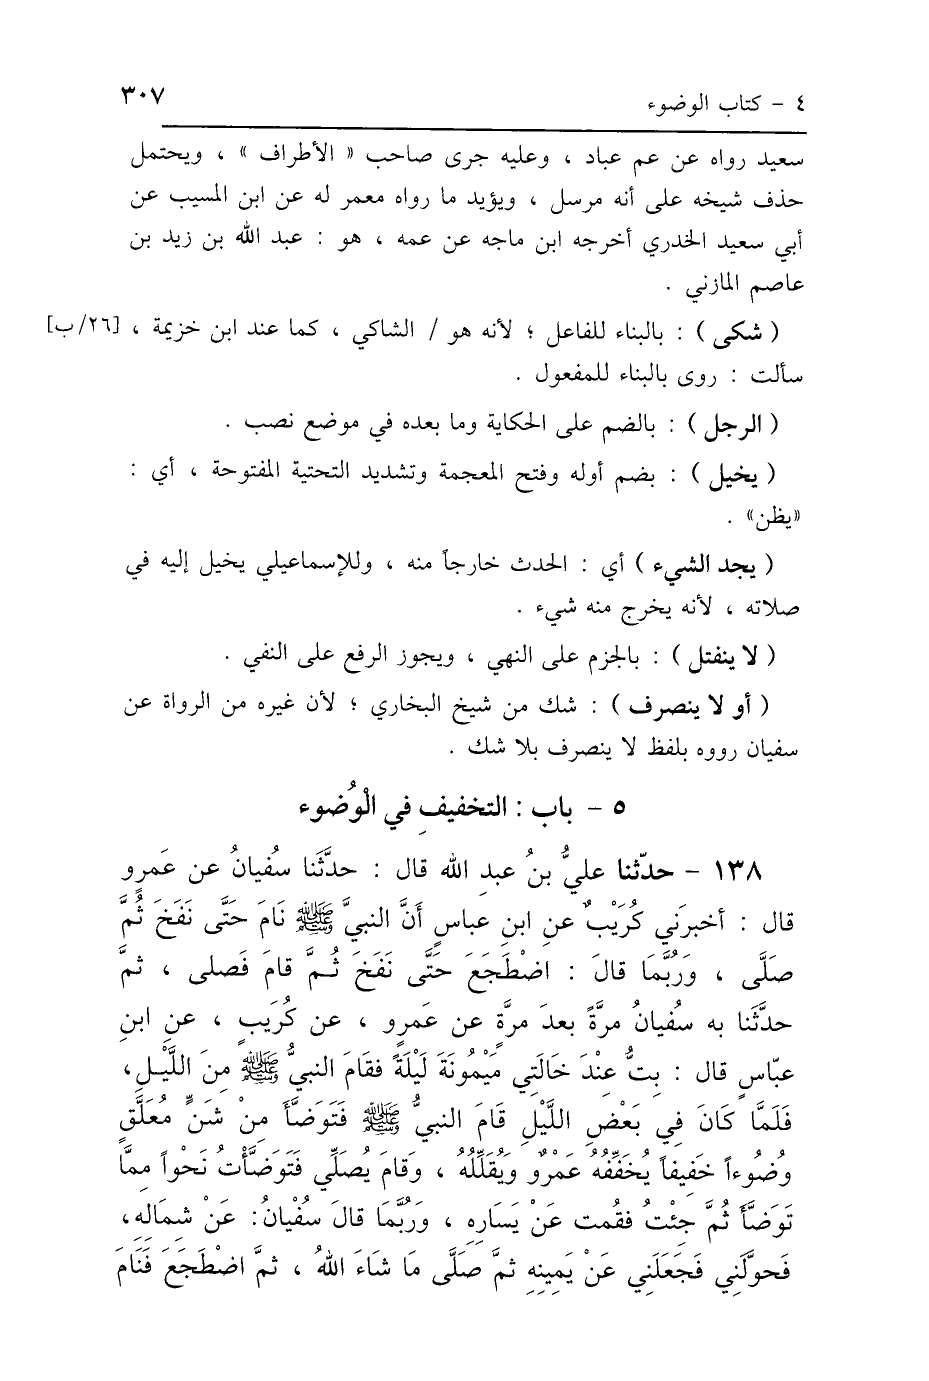 ٤ - كتاب الوضوء ٣٠٧
سعيد رواه عن عم عباد ، وعليه جرى صاحب « الأطراف » ، ويحتمل
حذف شيخه على أنه مرسل ، ويؤيد ما رواه معمر له عن ابن المسيب عن
أبي سعيد الخدري أخرجه ابن ماجه عن عمه ، هو : عبد الله بن زيد بن
عاصم المازني .
( شكى ) : بالبناء للفاعل ؛ لأنه هو / الشاكي ، كما عند ابن خزيمة ، [٢٦/ب]
سألت : روى بالبناء للمفعول .
( الرجل ) : بالضم على الحكاية وما بعده في موضع نصب .
( يخيل ) : بضم أوله وفتح المعجمة وتشديد التحتية المفتوحة ، أي :
«يظن» .
( يجد الشيء ) أي : الحدث خارجاً منه ، وللإسماعيلي يخيل إليه في
صلاته ، لأنه يخرج منه شيء .
( لا ينفتل ) : بالجزم على النهي ، ويجوز الرفع على النفي .
( أو لا ينصرف ) : شك من شيخ البخاري ؛ لأن غيره من الرواة عن
سفيان رووه بلفظ لا ينصرف بلا شك .
٥ - باب : التخفيفِ في الْوُضوء
١٣٨ - حدّثنا عليُّ بنُ عبدِ الله قال : حدَّثَنا سفُيانُ عن عَمرٍو
قال : أخبرَني كُرَيْبٌ عنِ ابنِ عباسٍ أَنَّ النبيَّ ﷺ نَامَ حَتَّى نَفَخَ ثُمَّ
صَلَّى ، وَرُبَّمَا قالَ : اضْطَجَعَ حَتَّى نَفَخَ ثُمَّ قامَ فَصلى ، ثمَّ
حدَّثَنا به سفُيانُ مرَّةً بعدَ مرَّةٍ عن عَمرٍو ، عن كُرَيبٍ ، عنِ ابنِ
عبّاسٍ قال : بِتُّ عِنْدَ خَالَتِي مَيْمُونَةَ لَيْلَةً فقَامَ النبيُّ ﷺ مِنَ اللَّيْلِ،
فَلَمَّا كَانَ فِي بَعْضِ اللَّيْلِ قَامَ النبيُّ ﷺ فَتَوَضَّأَ مِنْ شَنٍّ مُعَلَّقٍ
وُضُوءاً خَفيفاً يُخَفِّفُهُ عَمْرٌو وَيُقَلِّلُهُ ، وَقامَ يُصَلِّي فَتَوَضَّأْتُ نَحْواً مِمَّا
تَوَضَّأَ ثُمَّ جِئْتُ فقُمت عَنْ يَسَارِهِ ، وَرُبَّمَا قالَ سُفْيانُ: عَنْ شمالِهِ،
فَحوَّلَنِي فَجَعَلَنِي عَنْ يَمِينِهِ ثمَّ صَلَّى مَا شَاءَ اللهُ ، ثمَّ اضْطَجَعَ فَنَامَ